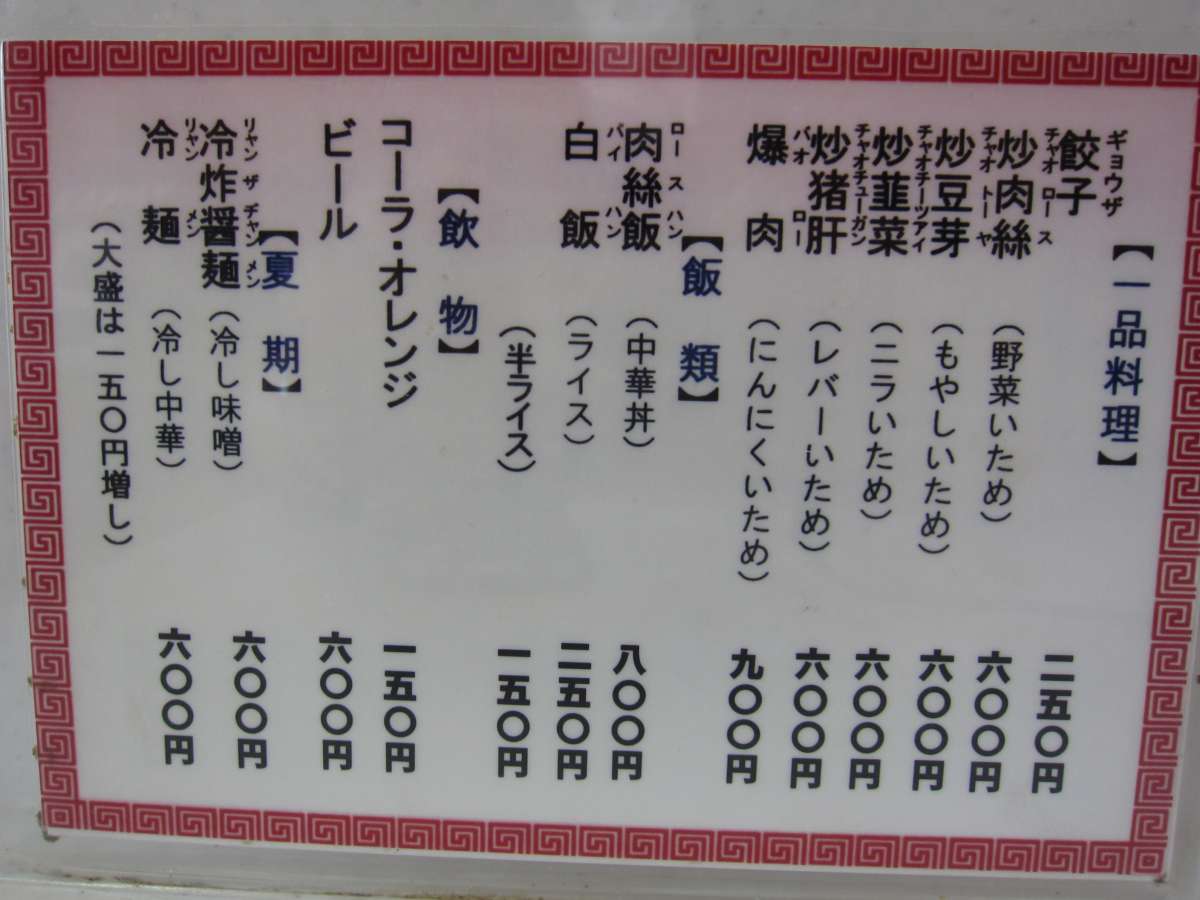 【一品料理】
餃子 ギョウザ 二五〇円
炒肉絲 チャオロース （野菜いため） 六〇〇円
炒豆芽 チャオトーヤ （もやしいため） 六〇〇円
炒韮菜 チャオチーツアイ （ニラいため） 六〇〇円
炒猪肝 チャオチューガン （レバーいため） 六〇〇円
爆肉 バオロー （にんにくいため） 九〇〇円
【飯類】
肉絲飯 ロースハン （中華丼） 八〇〇円
白飯 バイハン （ライス） 二五〇円
（半ライス） 一五〇円
【飲物】
コーラ・オレンジ 一五〇円
ビール 六〇〇円
【夏期】
冷炸醤麺 リャンザヂャンメン （冷し味噌） 六〇〇円
冷麺 リャンメン （冷し中華） 六〇〇円
（大盛は一五〇円増し）